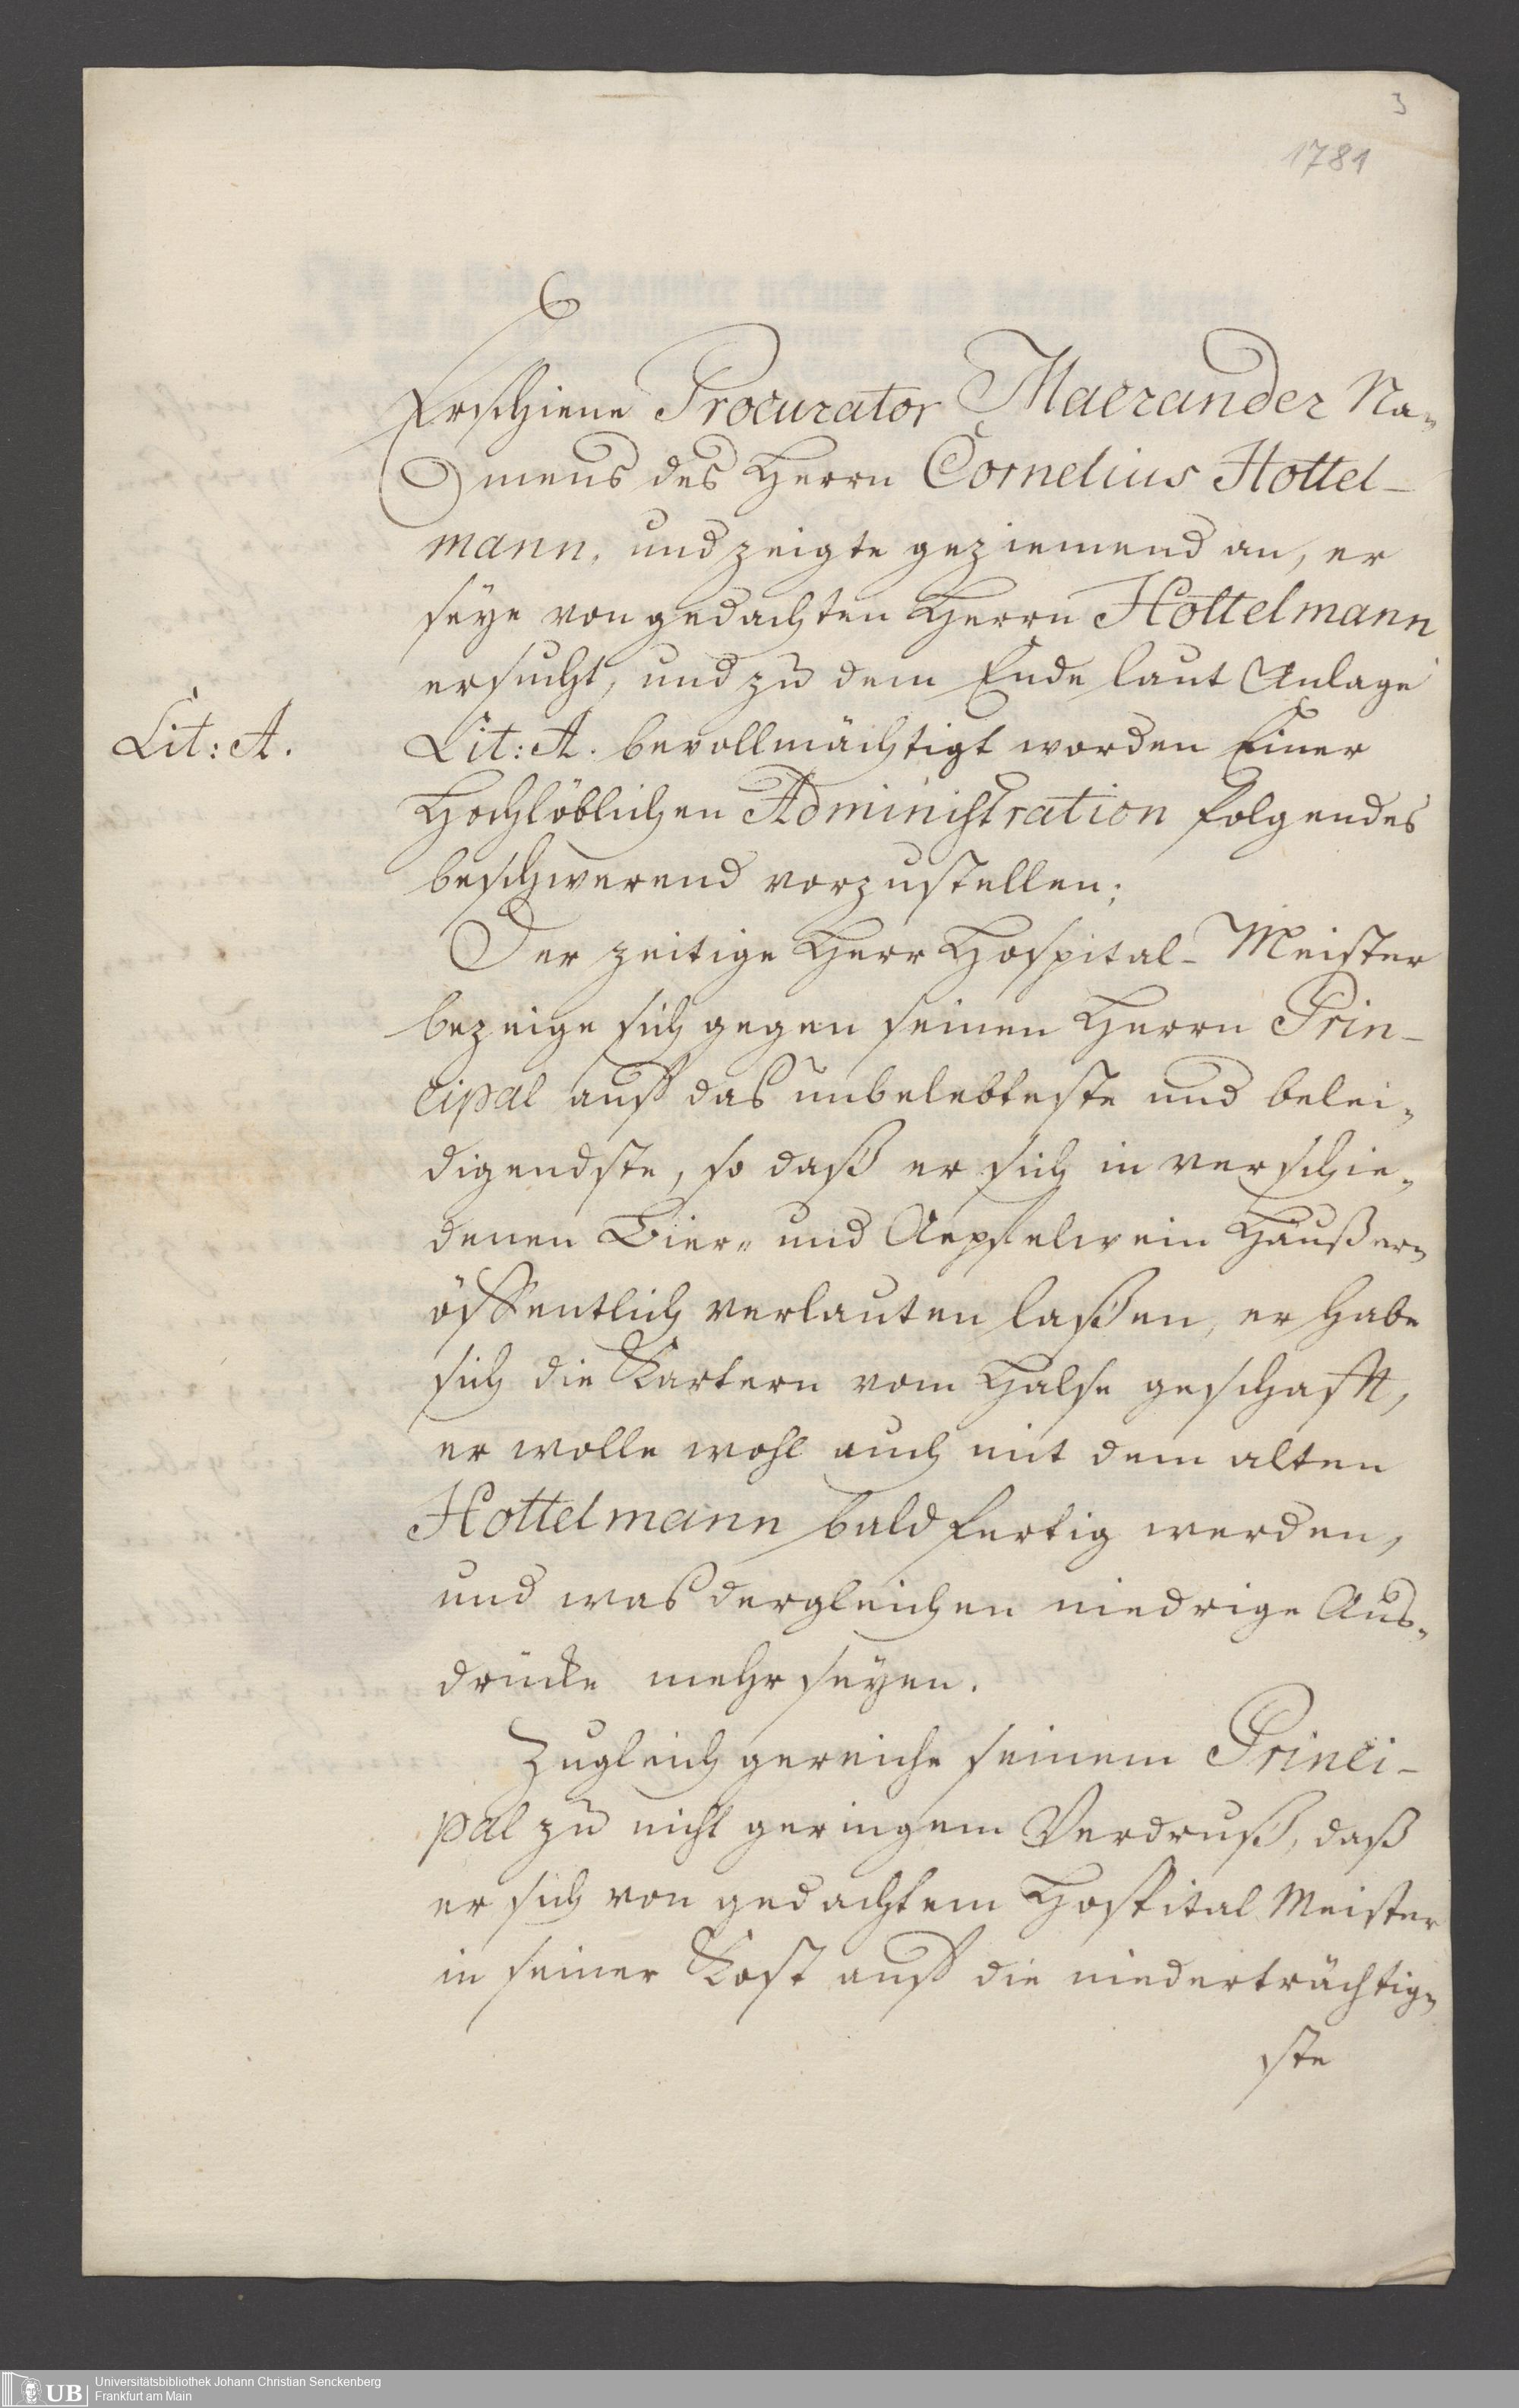 3
1781
Erschiene Procurator Macrander Na-
mens des Herrn Cornelius Hottel-
mann, und zeigte geziemend an, er
seye von gedachten Herrn Hottelmann
ersucht, und zu dem Ende laut Anlage
Lit: A.
Lit: A. bevollmächtigt worden Einer
Hochlöblichen Administration folgendes
beschwerend vorzustellen;
Der zeitige Herr Hospital-Meister
bezeige sich gegen seinen Herrn Prin-
cipal auf das unbelebteste und belei-
digendste, so daß er sich in verschie-
denen Bier- und Aepfelwein Häußern
öffentlich verlauten laßen, er habe
sich die Kartern vom Halse geschafft,
er wolle wohl auch mit dem alten
Hottelmann bald fertig werden,
und was dergleichen niedrige Aus-
drücke mehr seyen.
Zugleich gereiche seinem Princi-
pal zu nicht geringem Verdruß, daß
er sich von gedachtem Hospital Meister
in seiner Kost auf die niederträchtig-
ste
UB
Universitätsbibliothek Johann Christian Senckenberg
Frankfurt am Main